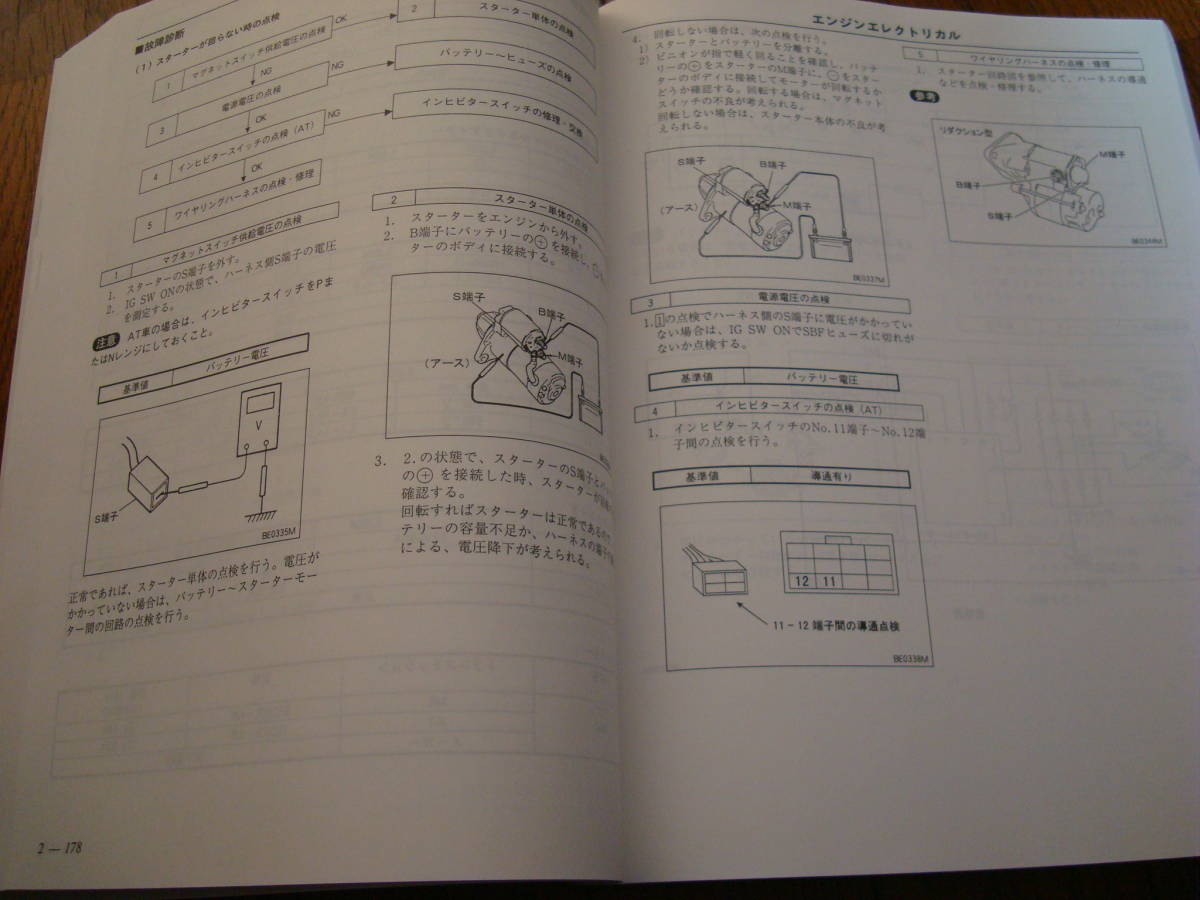 ■故障診断
(1)スターターが回らない時の点検
1 マグネットスイッチ供給電圧の点検
OK
2 スターター単体の点検
NG
3 電源電圧の点検
NG
バッテリー〜ヒューズの点検
OK
4 インヒビタースイッチの点検(AT)
NG
インヒビタースイッチの修理・交換
OK
5 ワイヤリングハーネスの点検・修理
1 マグネットスイッチ供給電圧の点検
1. スターターのS端子を外す。
2. IG SW ONの状態で、ハーネス側S端子の電圧
を測定する。
注意 AT車の場合は、インヒビタースイッチをPま
たはNレンジにしておくこと。
基準値 バッテリー電圧
V
S端子
BE0335M
正常であれば、スターター単体の点検を行う。電圧が
かかっていない場合は、バッテリー〜スターターモー
ター間の回路の点検を行う。
2 — 178
2 スターター単体の点検
1. スターターをエンジンから外す。
2. B端子にバッテリーの⊕を接続し、
ターのボディに接続する。
S端子
B端子
M端子
(アース)
3. 2.の状態で、スターターのS端子と
の⊕を接続した時、スターターが
確認する。
回転すればスターターは正常であるので
テリーの容量不足か、ハーネスの端子
による、電圧降下が考えられる。
エンジンエレクトリカル
4. 回転しない場合は、次の点検を行う。
1) スターターとバッテリーを分離する。
2) ピニオンが指で軽く回ることを確認し、バッテ
リーの⊕をスターターのM端子に、⊖をスター
ターのボディに接続してモーターが回転するか
どうか確認する。回転する場合は、マグネット
スイッチの不良が考えられる。
回転しない場合は、スターター本体の不良が考
えられる。
S端子
B端子
M端子
(アース)
BE0337M
3 電源電圧の点検
1. 1の点検でハーネス側のS端子に電圧がかかってい
ない場合は、IG SW ONでSBFヒューズに切れが
ないか点検する。
基準値 バッテリー電圧
4 インヒビタースイッチの点検(AT)
1. インヒビタースイッチのNo.11端子〜No.12端
子間の点検を行う。
基準値 導通有り
12 11
11－12 端子間の導通点検
BE0338M
5 ワイヤリングハーネスの点検・修理
1. スターター回路図を参照して、ハーネスの導通
などを点検・修理する。
参考
リダクション型
M端子
B端子
S端子
BE0344M